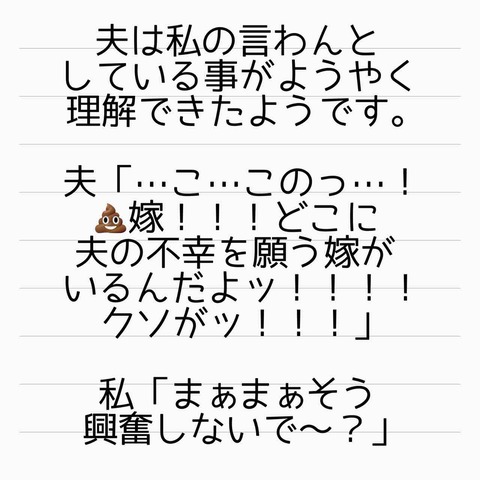 夫は私の言わんと
している事がようやく
理解できたようです。
夫「…こ…このっ…！
💩嫁！！！どこに
夫の不幸を願う嫁が
いるんだよッ！！！！
クソがッ！！！」
私「まぁまぁそう
興奮しないで〜？」